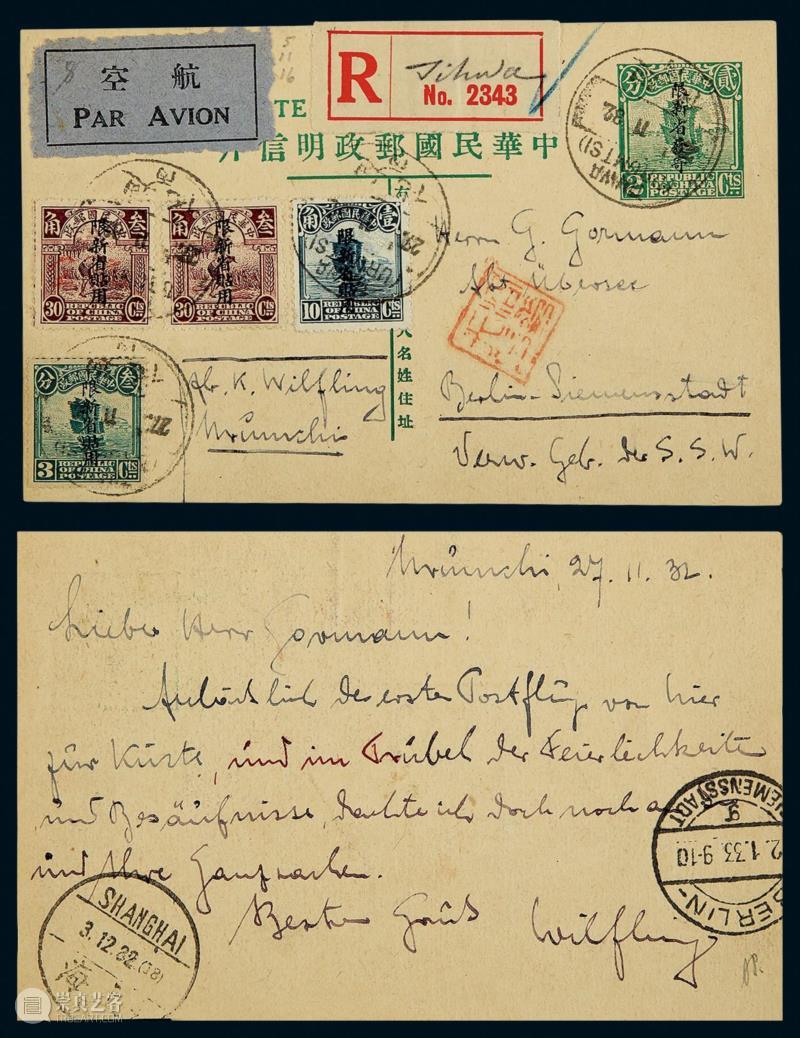 航空
PAR AVION
R
Tihwa
No. 2343
5
11
16
中華民國郵政明信片
貳分
中華民國郵政
限新省貼用
REPUBLIC
OF CHINA
2 Cts
叁角
限新省貼用
30 Cts
REPUBLIC
OF CHINA
POSTAGE
叁角
限新省貼用
30 Cts
REPUBLIC
OF CHINA
POSTAGE
壹角
中華民國郵政
限新省貼用
10 Cts
REPUBLIC
OF CHINA
POSTAGE
叁分
限新省貼用
3 Cts
REPUBLIC
OF CHINA
POSTAGE
人名姓住址
Herrn G. Gormann
Abt Übersee
Berlin-Siemensstadt
Verw. Geb. der S. S. W.
Ab. K. Wilfling
Urumchi
Urumchi, 27. 11. 32.
Lieber Herr Gormann!
Anlässlich des ersten Postflugs von hier
zur Küste, und im Trubel der Feierlichkeiten
und Besäufnisse, dachte ich doch noch an
und Ihre
Besten Gruß Wilfling
SHANGHAI
3.12.32 (18)
海
BERLIN-SIEMENSSTADT
g
2.1.33. 9-10
崇真艺客